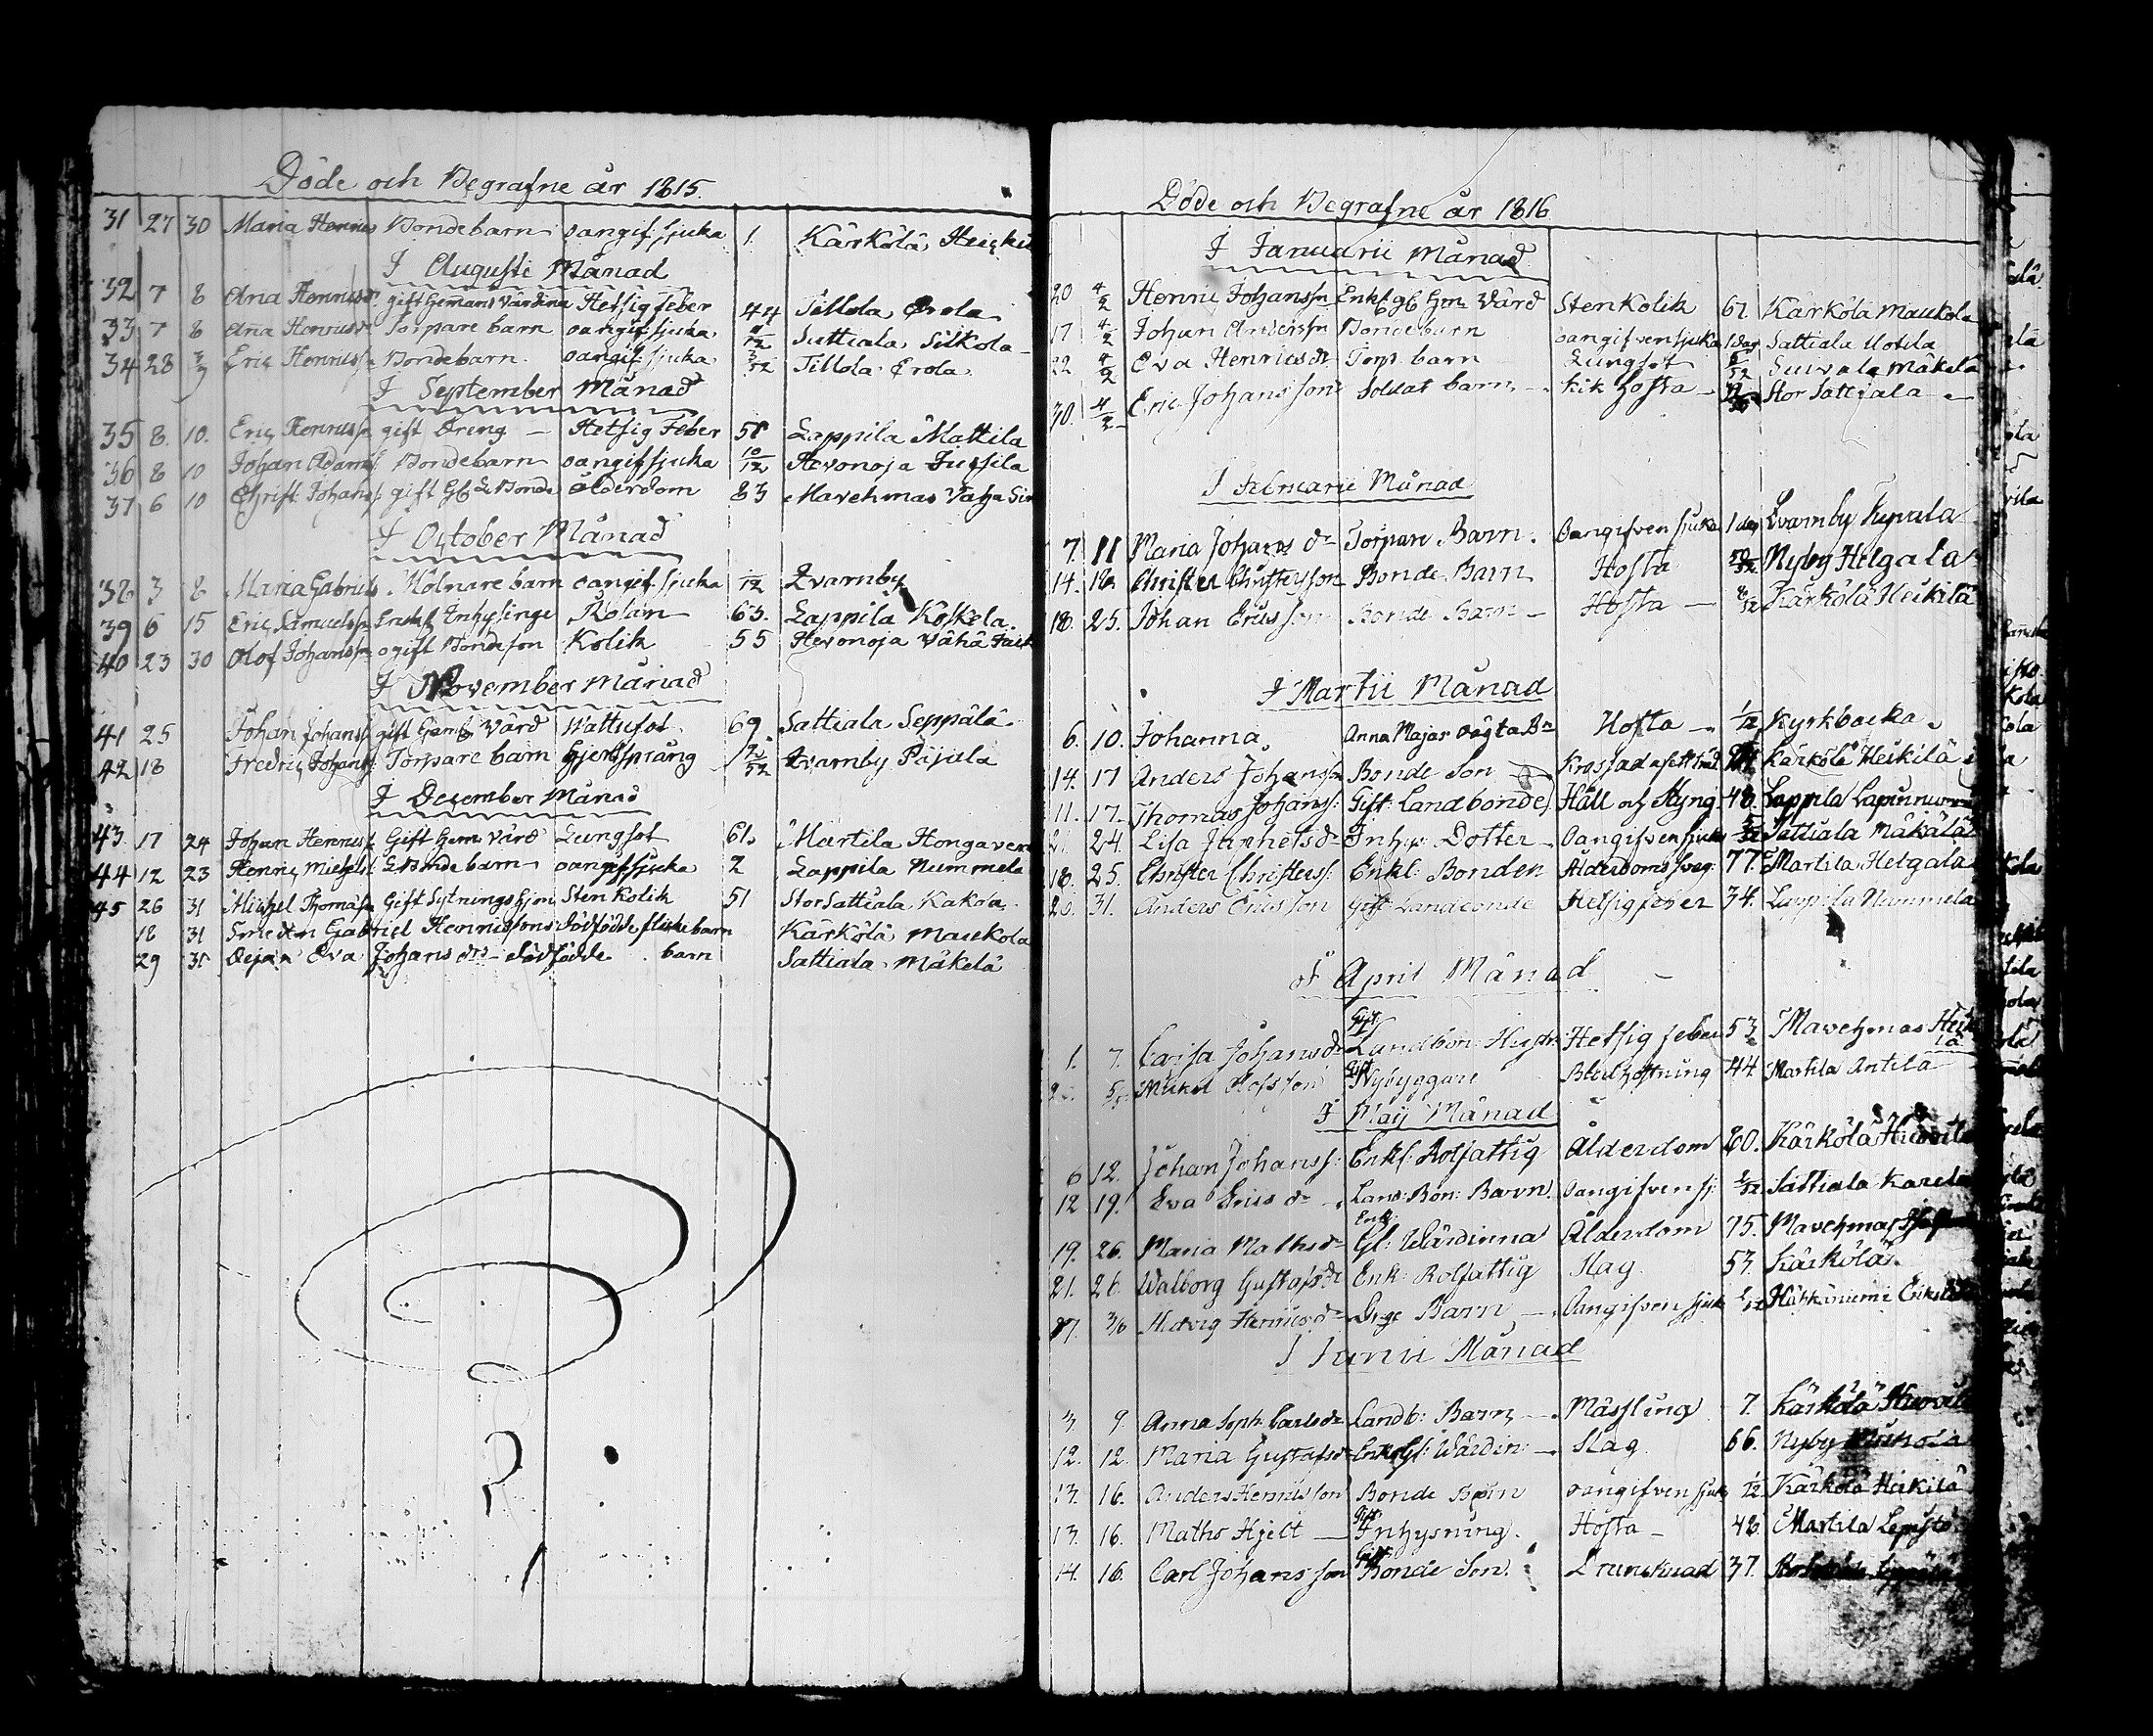 Döde och Begrafne år 1815.
31 27 30 Maria Henrics Bondebarn oangif: sjuka 1. Kärkölä
I Augusti Månad
32 7 8 Ana Henricsdr gift Hemans Värdina Hetsig feber 44 Tillola Erola
33 7 8 Ana Henricsdr Torpare barn oangif sjuka Sattiala Silkola
34 28 3/9 Eric Henricss Bondebarn. oangif: sjuka 3/52 Tillola Erola
I September Månad
35 8. 10. Eric Henricss gift Dreng — Hetsig Feber 58 Lappila Mattila
36 8 10 Johan Adams Bondebarn oangif sjuka 10/12 Hevonoja Jussila
37 6 10 Christ: Johans gift Gl. L Bonde ålderdom 83 Mavehmas Vaha
I October Månad
38 3 8 Maria Gabriels Molnare barn oangif. sjuka /12 Qvarnby
39 6 15 Eric Samuelss Enkl Inhysinge 63. Lappila Koskela.
40 23 30 Olof Johanss ogift Bondeson Kolik 55 Hevonoja Vähä
I November Månad
41 25 Johan Johans gift Värd Wattusot 69. Sattiala Seppälä
42 18 Fredric Johans Torpare barn Hjertsprång Qvarnby Päjula
I December Månad
43. 17 24 Johan Henricss Gift Hem: Värd Lungsot 61. Martila
44 12 23 Henric Michels L Bonde barn oangif sjuka 2 Lappila Nummela
45 26 31 Michel Thomass Gift Sytnings hjon Sten Kolik 51 Stor Sattiala Kakola
18 31 Smeden Gabriel Henricssons dödfödde flickebarn Kärkölä Maukola
29 31 Dejan Eva Johans dr dödfödde barn Sattiala Mäkelä
Döde och Begrafne år 1816
I Januarii Månad
20 4/2 Henric Johansson Enkl gl Hm Värd Stenkolik 61. Kärkölä Maukola
17 4/2 Johan Andersson Bondebarn oangifven sjuka 1 dag Sattiala Uotila
22 4/2 Eva Henricsdr Torp: barn Lungsot 5/52 Mäkelä
30. 4/2 Eric Johansson Soldat barn — kik hosta — Stor Sattiala
I Februarii Månad
7. 11 Maria Johans dr Torpare Barn. Oangifven sjuka 1 dag Qvarnby
14. 18. Christer Christersson Bonde Barn Hosta Nyby Helgala
18. 25. Johan Ericsson Bonde Barn — Hosta — 8/12 Kärkölä Heikilä
I Martii Månad
6. 10. Johanna, Anna Majas oägta Bn Hosta — 1/12 Kyrkbacka.
14. 17 Anders Johansson Bonde Son Kärkölä Heikilä
11. 17. Thomas Johanss: Gift: Landbonde Håll och Styng 48. Lappila
21. 24. Lisa dr Inhys: Dotter Oangifven sjuka Sattiala Mäkälä
18. 25. Christer Christers: Enkl: Bonden Alderdoms svag: 77. Martila Helgala
20. 31. Anders Ericsson gift Landbonde Hetsig feber 34. Lappila Nummela
I April Månad
1. 7. Caisa Johansdr Gift Landbon: Hustr: Hetsig feber 53 Mavehmas Heiki
lä
5/5 Mickel Olofsson Gift Nybyggare Blodhostning 44 Martila Antila
I Maij Månad
6 12. Johan Johanss: Enkl: Rotfattig Ålderdom 80. Kärkölä
12 19. Eva Erics dr Land: Bon: Barn. Oangifven sj: Sattiala Karela
19. 26. Maria Mathsdr Enk: Gl: Wärdinna Ålderdom 75. Mavehmas
21. 26. Walborg Gustafsdr Enk: Rotfattig Slag. 53. Kärkölä
27. 3/6 Hedvig Henricsdr Barn — Oangifven sjuk
I Junii Månad
3. 9. Anna Soph: Carlsdr Landb: Barn — Mässling 7. Kärkölä
12. 12. Maria Gustafsdr Enk. Gl: Wärdin: — Slag. 66. Nyby
13. 16. Anders Henricsson Bonde Barn oangifven sjuk 1/12 Kärkölä Heikilä
13. 16. Maths Hjelt — Gift Inhysning. Hosta — 48. Martila Lepistö
14. 16. Carl Johansson Gift Bonde Son. Drunknad 37.